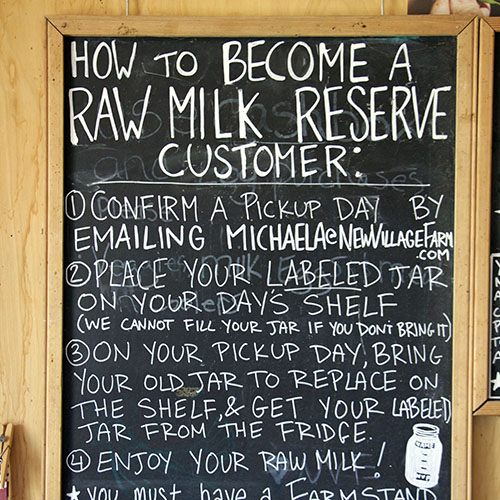 HOW TO BECOME A
RAW MILK RESERVE
CUSTOMER:
① CONFIRM A PICKUP DAY BY
EMAILING MICHAELA@NEWVILLAGEFARM
.COM
② PLACE YOUR LABELED JAR
ON YOUR DAY'S SHELF
(WE CANNOT FILL YOUR JAR IF YOU DON'T BRING IT)
③ ON YOUR PICKUP DAY, BRING
YOUR OLD JAR TO REPLACE ON
THE SHELF, & GET YOUR LABELED
JAR FROM THE FRIDGE.
④ ENJOY YOUR RAW MILK!
NAME
★ you must have a FARMSTAN